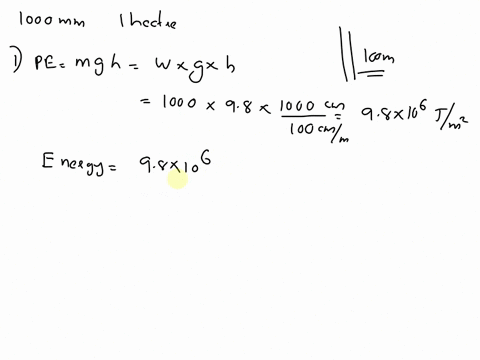 1000 mm 1 hectre
1) PE = mgh = w x g x h
100m
= 1000 x 9.8 x 1000 cm / 100 cm/m = 9.8 x 10^6 J/m^2
Energy = 9.8 x 10^6